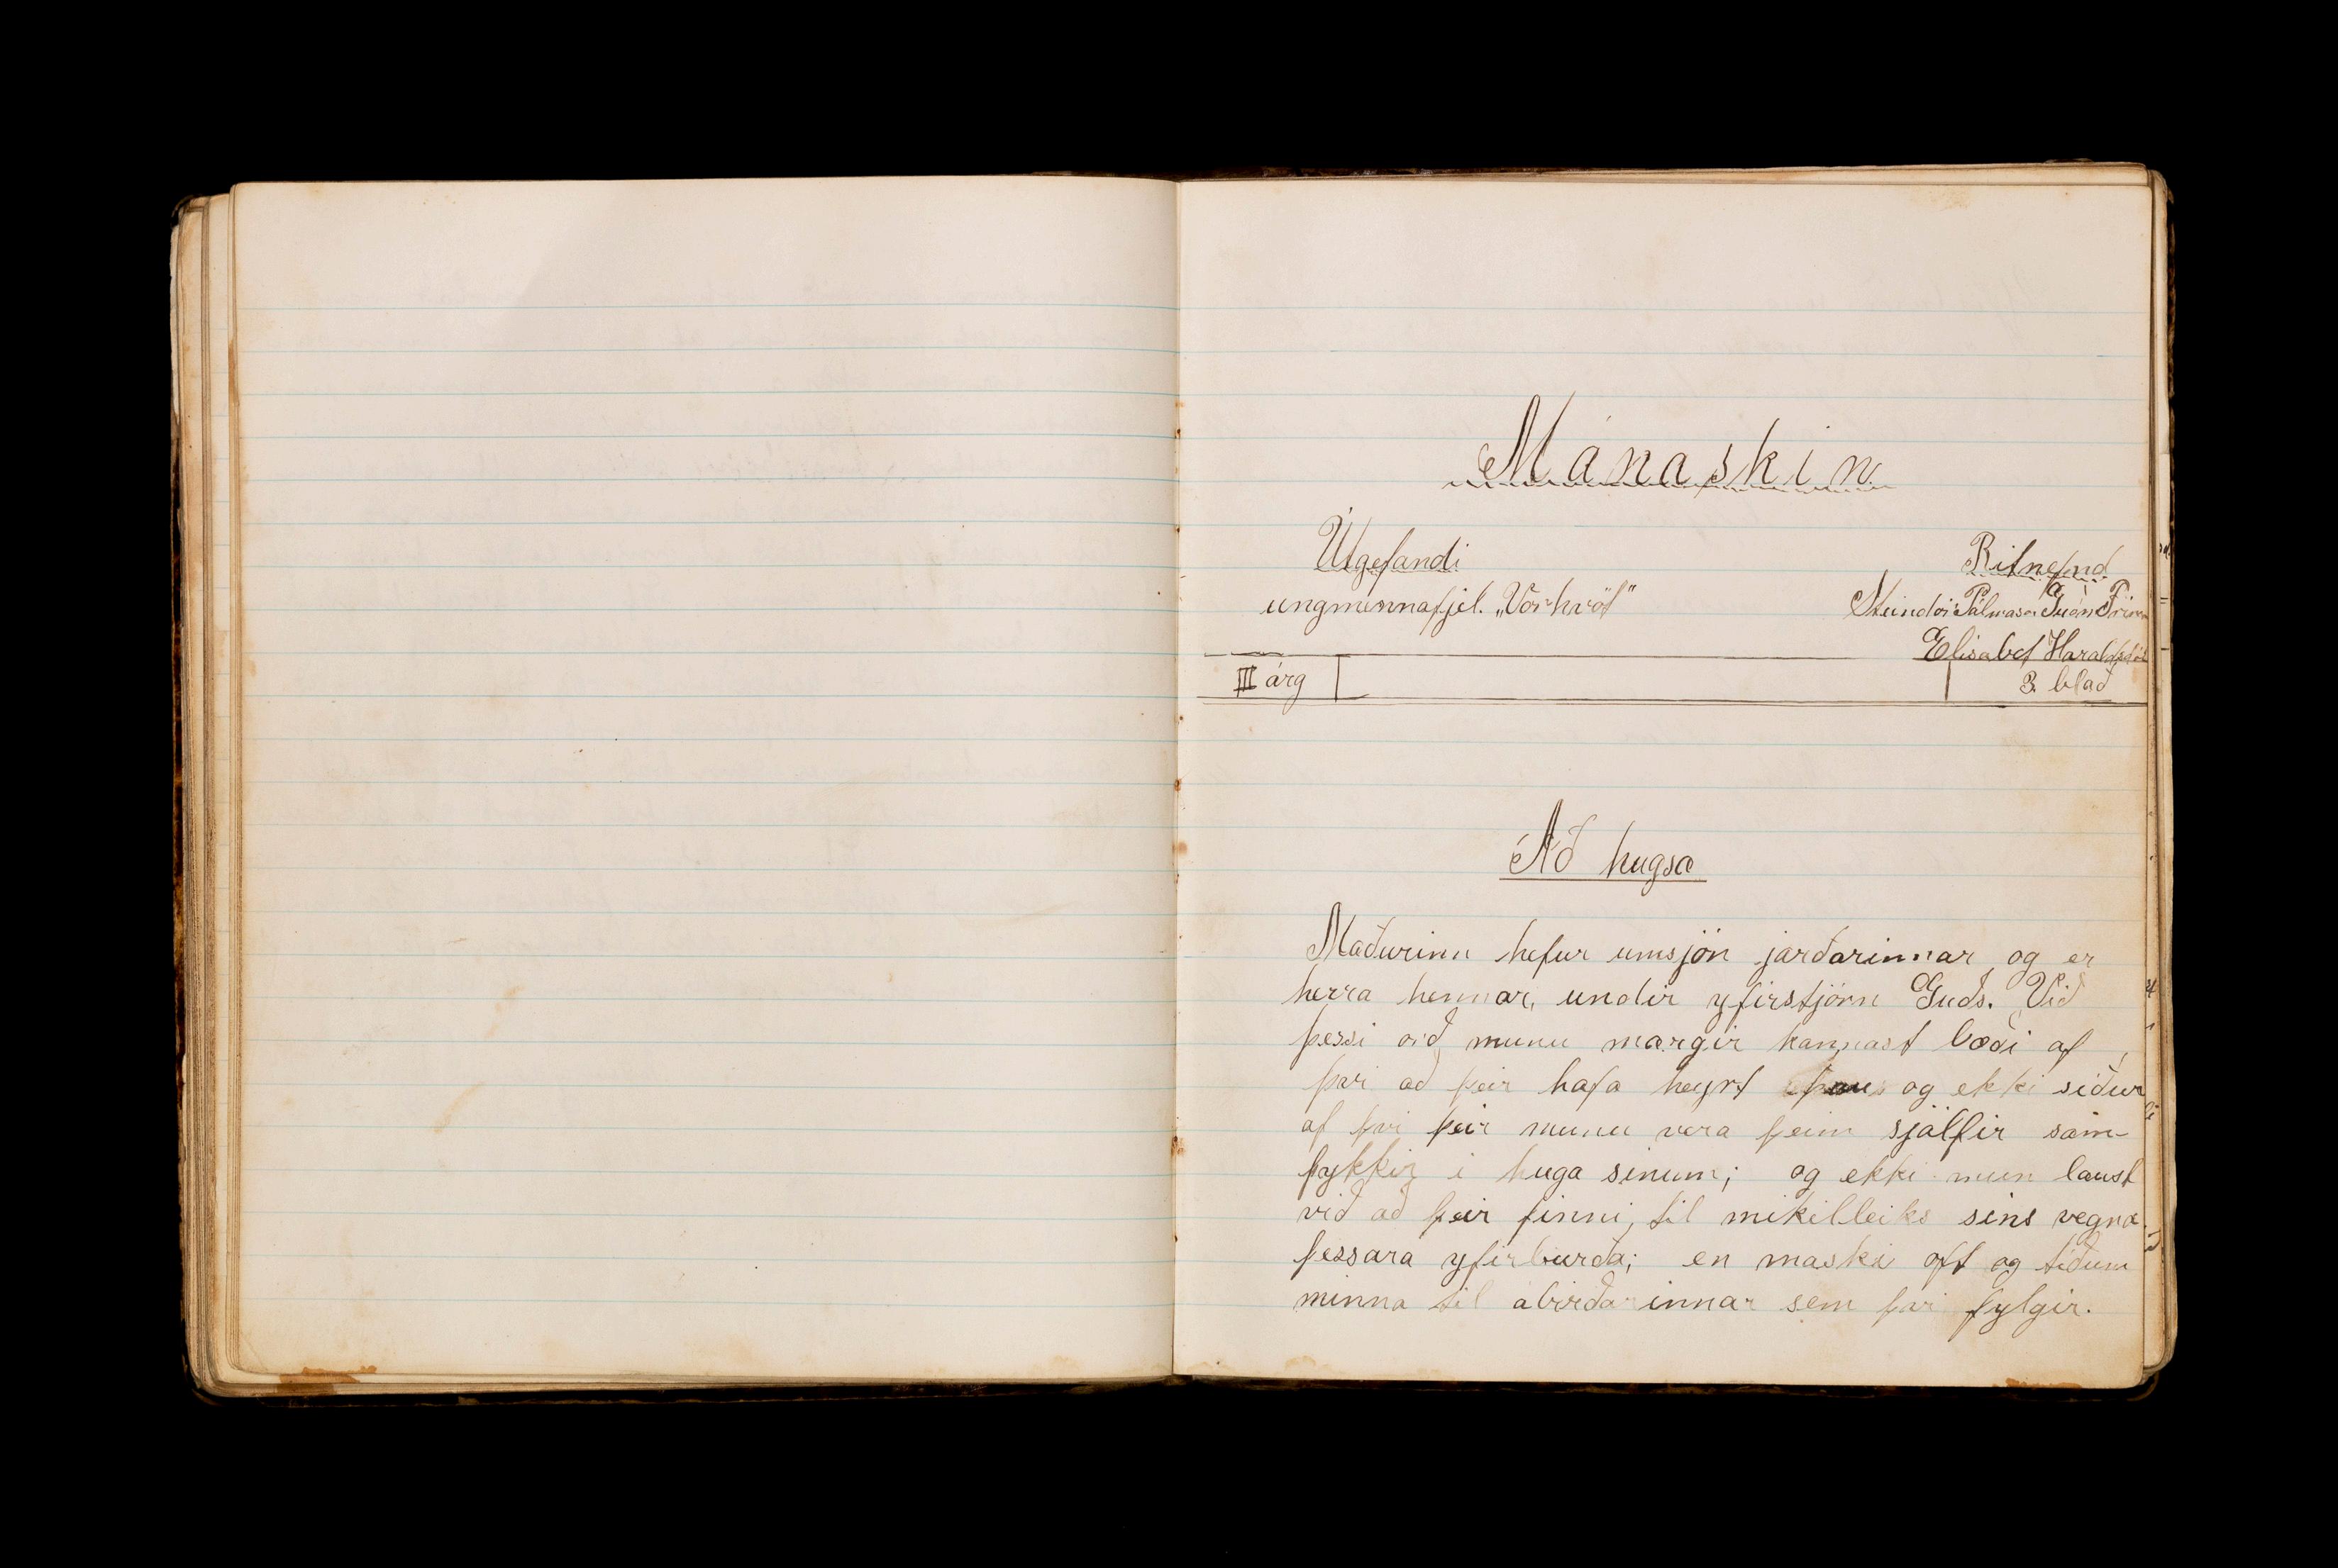 Mánaskin
Útgefandi
ungmennafjel. „Vorhvöt"
Ritnefnd
Steindór Pálmason
Elisabet Haraldsdót
III árg
3. blað
Að hugsa
Maðurinn hefur umsjón jarðarinnar, og er
herra hennar, undir yfirstjórn Guðs. Við
þessi orð munu margir kannast bæði af
því að þeir hafa heyrt þau og ekki síður
af því þeir munu vera þeim sjálfir sam-
þykkir í huga sínum; og ekki mun laust
við að þeir finni, til mikilleiks síns vegna
þessara yfirburða; en máski oft og tíðum
minna til ábirðarinnar sem því fylgir.